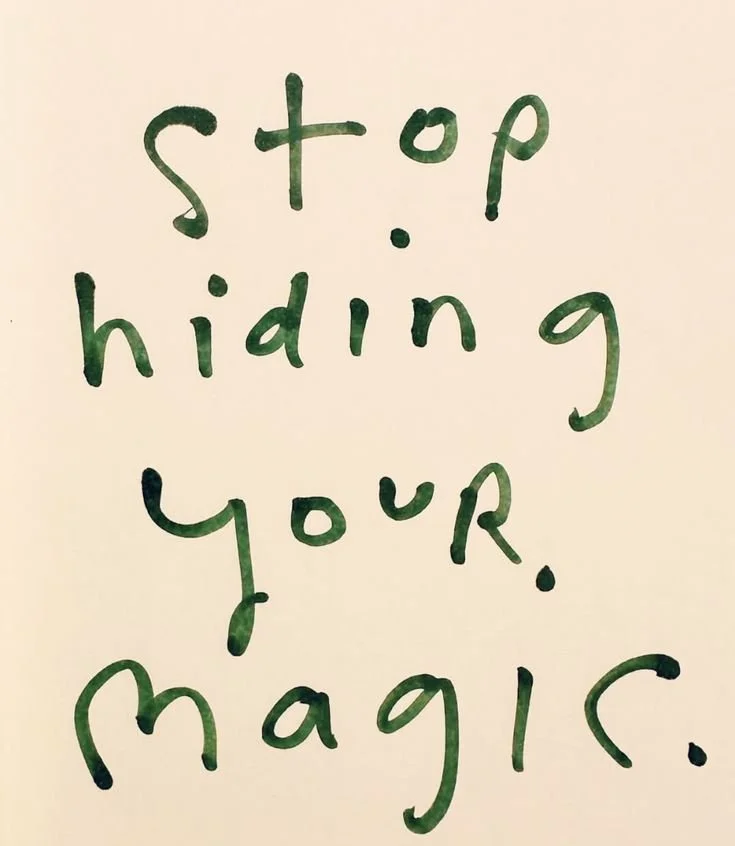 stop
hiding
youR.
magic.